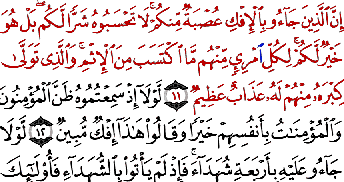 إِنَّ الَّذِينَ جَاءُو بِالْإِفْكِ عُصْبَةٌ مِّنكُمْ لَا تَحْسَبُوهُ شَرًّا لَّكُم بَلْ هُوَ
خَيْرٌ لَّكُمْ لِكُلِّ امْرِئٍ مِّنْهُم مَّا اكْتَسَبَ مِنَ الْإِثْمِ وَالَّذِي تَوَلَّىٰ
كِبْرَهُ مِنْهُمْ لَهُ عَذَابٌ عَظِيمٌ ١١ لَّوْلَا إِذْ سَمِعْتُمُوهُ ظَنَّ الْمُؤْمِنُونَ
وَالْمُؤْمِنَاتُ بِأَنفُسِهِمْ خَيْرًا وَقَالُوا هَٰذَا إِفْكٌ مُّبِينٌ ١٢ لَّوْلَا
جَاءُو عَلَيْهِ بِأَرْبَعَةِ شُهَدَاءَ فَإِذْ لَمْ يَأْتُوا بِالشُّهَدَاءِ فَأُولَٰئِكَ